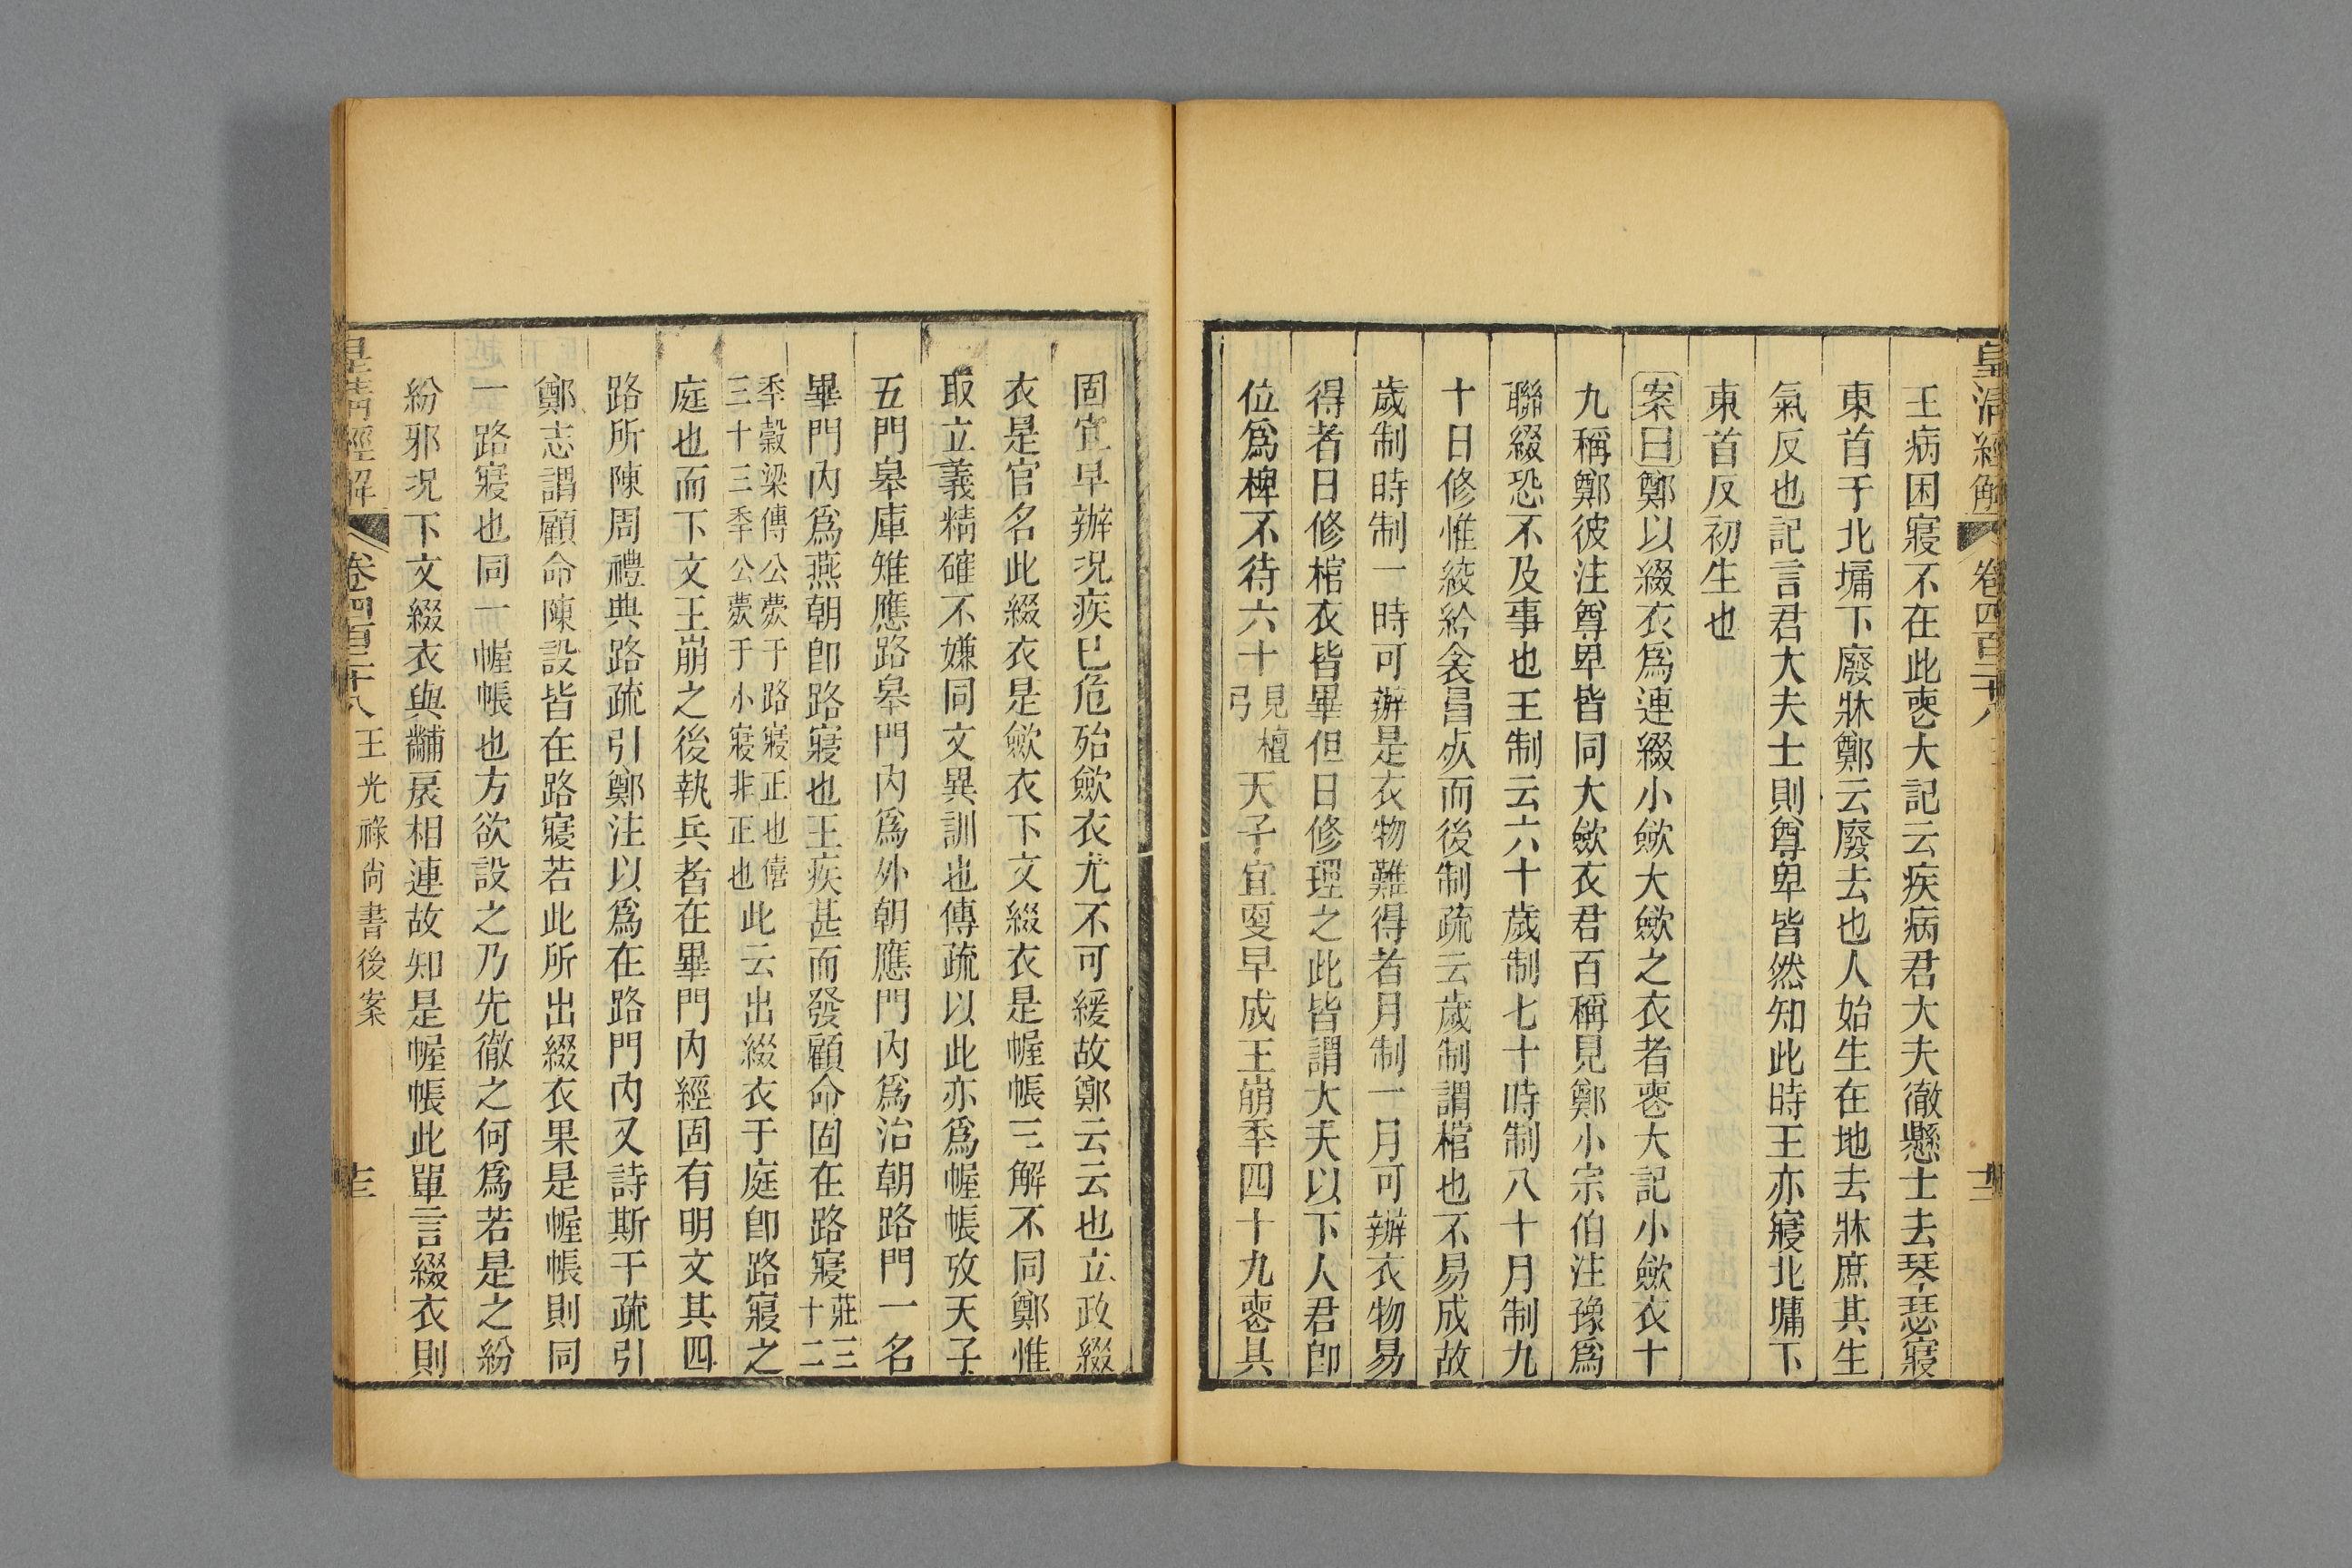 皇清經解 卷四百二十八 十二
王病困寢不在此喪大記云疾病君大夫徹懸士去琴瑟寢
東首于北墉下廢牀鄭云廢去也人始生在地去牀庶其生
氣反也記言君大夫士則尊卑皆然知此時王亦寢北墉下
東首反初生也
案曰鄭以綴衣爲連綴小斂大斂之衣者喪大記小斂衣十
九稱鄭彼注尊卑皆同大斂衣君百稱見鄭小宗伯注豫爲
聯綴恐不及事也王制云六十歲制七十時制八十月制九
十日修惟絞紟衾冒死而後制疏云歲制謂棺也不易成故
歲制時制一時可辦是衣物難得者月制一月可辦衣物易
得者日修棺衣皆畢但日修理之此皆謂大夫以下人君卽
位爲椑不待六十見檀弓天子宜更早成王崩年四十九喪具
固宜早辦況疾已危殆斂衣尤不可緩故鄭云云也立政綴
衣是官名此綴衣是斂衣下文綴衣是幄帳三解不同鄭惟
取立義精確不嫌同文異訓也傳疏以此亦爲幄帳攷天子
五門皋庫雉應路皋門內爲外朝應門內爲治朝路門一名
畢門內爲燕朝卽路寢也王疾甚而發顧命固在路寢莊三十二
年穀梁傳公薨于路寢正也僖三十三年公薨于小寢非正也此云出綴衣于庭卽路寢之
庭也而下文王崩之後執兵者在畢門內經固有明文其四
路所陳周禮典路疏引鄭注以爲在路門內又詩斯干疏引
鄭志謂顧命陳設皆在路寢若此所出綴衣果是幄帳則同
一路寢也同一幄帳也方欲設之乃先徹之何爲若是之紛
紛邪況下文綴衣與黼扆相連故知是幄帳此單言綴衣則
皇清經解 卷四百二十八 王光祿尚書後案 十三